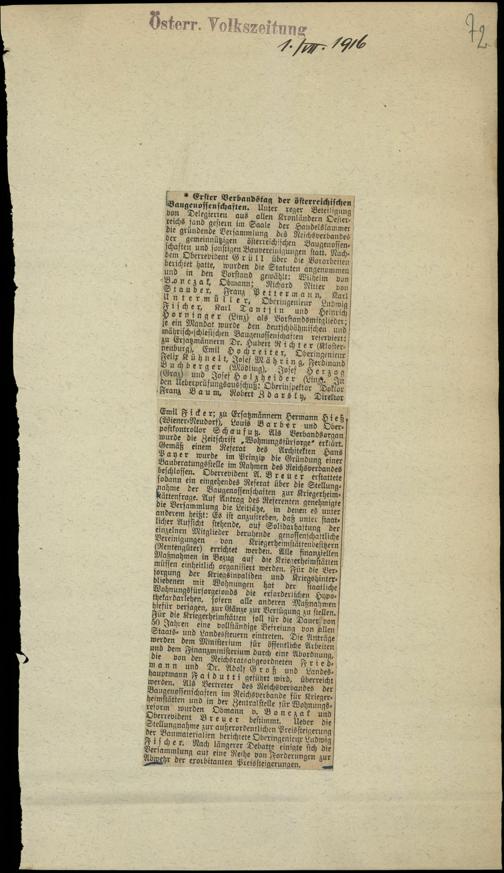 Österr. Volkszeitung
1./VII. 1916
72
* Erster Verbandstag der österreichischen
Baugenossenschaften. Unter reger Beteiligung
von Delegierten aus allen Kronländern Oester-
reichs fand gestern im Saale der Handelskammer
die gründende Versammlung des Reichsverbandes
der gemeinnützigen österreichischen Baugenossen-
schaften und sonstigen Bauvereinigungen statt. Nach-
dem Oberrevident Grüll über die Vorarbeiten
berichtet hatte, wurden die Statuten angenommen
und in den Vorstand gewählt: Wilhelm von
Bonczak, Obmann; Richard Ritter von
Stauber, Franz Pettermann, Karl
Untermüller, Oberingenieur Ludwig
Fischer, Karl Tantjin und Heinrich
Horninger (Linz) als Vorstandsmitglieder;
je ein Mandat wurde den deutschböhmischen und
mährisch-schlesischen Baugenossenschaften reserviert;
zu Ersatzmännern Dr. Hubert Richter (Kloster-
neuburg), Emil Hochreiter, Oberingenieur
Felix Kühnelt, Josef Mähring, Ferdinand
Buchberger (Mödling), Josef Herzog
(Graz) und Josef Holzheider (Linz). In
den Ueberprüfungsausschuß: Oberinspektor Doktor
Franz Baum, Robert Zdarsky, Direktor
Emil Ficker; zu Ersatzmännern Hermann Hieß
(Wiener-Neudorf), Louis Barber und Ober-
postkontrollor Schaufuß. Als Verbandsorgan
wurde die Zeitschrift „Wohnungsfürsorge" erklärt.
Gemäß einem Referat des Architekten Hans
Payer wurde im Prinzip die Gründung einer
Bauberatungsstelle im Rahmen des Reichsverbandes
beschlossen. Oberrevident A. Breuer erstattete
sodann ein eingehendes Referat über die Stellung-
nahme der Baugenossenschaften zur Kriegerheim-
stättenfrage. Auf Antrag des Referenten genehmigte
die Versammlung die Leitsätze, in denen es unter
anderem heißt: Es ist anzustreben, daß unter staat-
licher Aufsicht stehende, auf Solidarhaftung der
einzelnen Mitglieder beruhende genossenschaftliche
Vereinigungen von Kriegerheimstättenbesitzern
(Rentengüter) errichtet werden. Alle finanziellen
Maßnahmen in Bezug auf die Kriegerheimstätten
müssen einheitlich organisiert werden. Für die Ver-
sorgung der Kriegsinvaliden und Kriegshinter-
bliebenen mit Wohnungen hat der staatliche
Wohnungsfürsorgefonds die erforderlichen Hypo-
thekardarlehen, sofern alle anderen Maßnahmen
hiefür versagen, zur Gänze zur Verfügung zu stellen.
Für die Kriegerheimstätten soll für die Dauer von
50 Jahren eine vollständige Befreiung von allen
Staats- und Landessteuern eintreten. Die Anträge
werden dem Ministerium für öffentliche Arbeiten
und dem Finanzministerium durch eine Abordnung,
die von den Reichsratsabgeordneten Fried-
mann und Dr. Adolf Groß und Landes-
hauptmann Faidutti geführt wird, überreicht
werden. Als Vertreter des Reichsverbandes der
Baugenossenschaften im Reichsverbande für Krieger-
heimstätten und in der Zentralstelle für Wohnungs-
reform wurden Obmann v. Bonczak und
Oberrevident Breuer bestimmt. Ueber die
Stellungnahme zur außerordentlichen Preissteigerung
der Baumaterialien berichtete Oberingenieur Ludwig
Fischer. Nach längerer Debatte einigte sich die
Versammlung auf eine Reihe von Forderungen zur
Abwehr der exorbitanten Preissteigerungen.